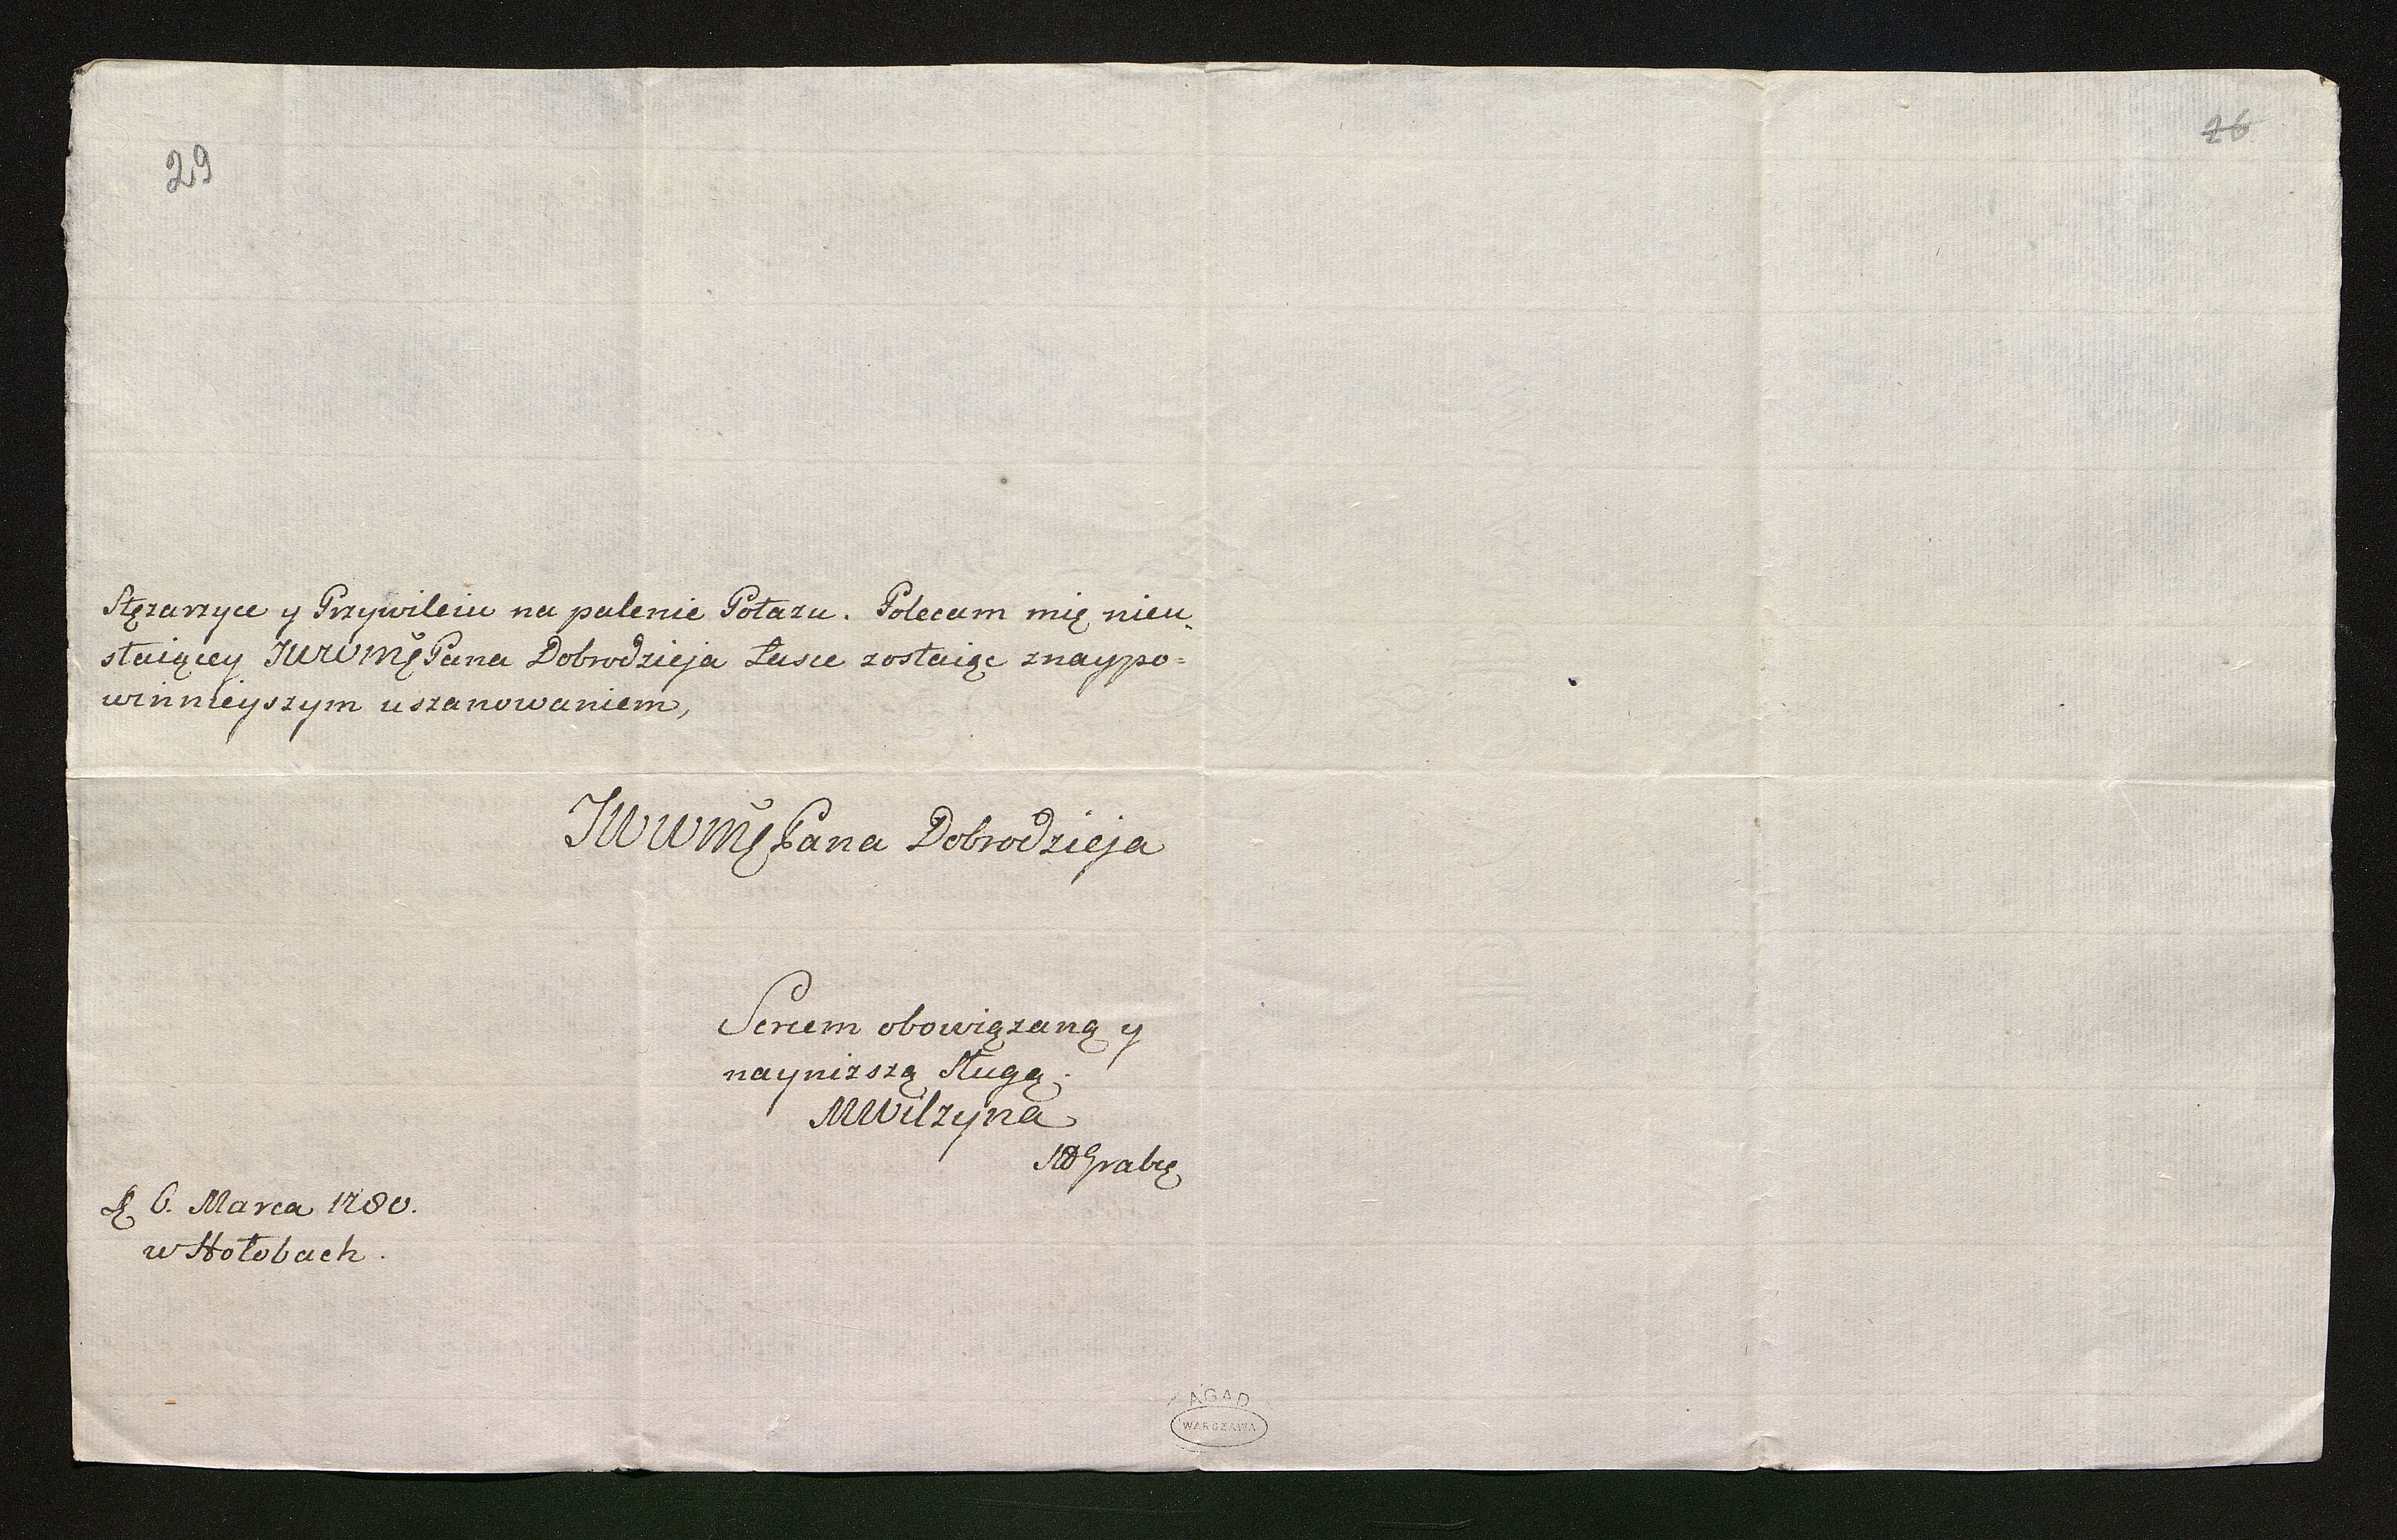 29
26
Stęzarzyce y Przywileiu na palenie Potazu. Polecam mię nieu„
staiącey JWWMę Pana Dobrodzieja Łasce zostaiąc znaypo=
winnieyszym uszanowaniem,
JWWMę Pana Dobrodzieja
Sercem obowiązaną y
nayniższą sługą.
MWilzyna
D. 6. Marca 1780.
w Hołobach.
AGAD
WARSZAWA